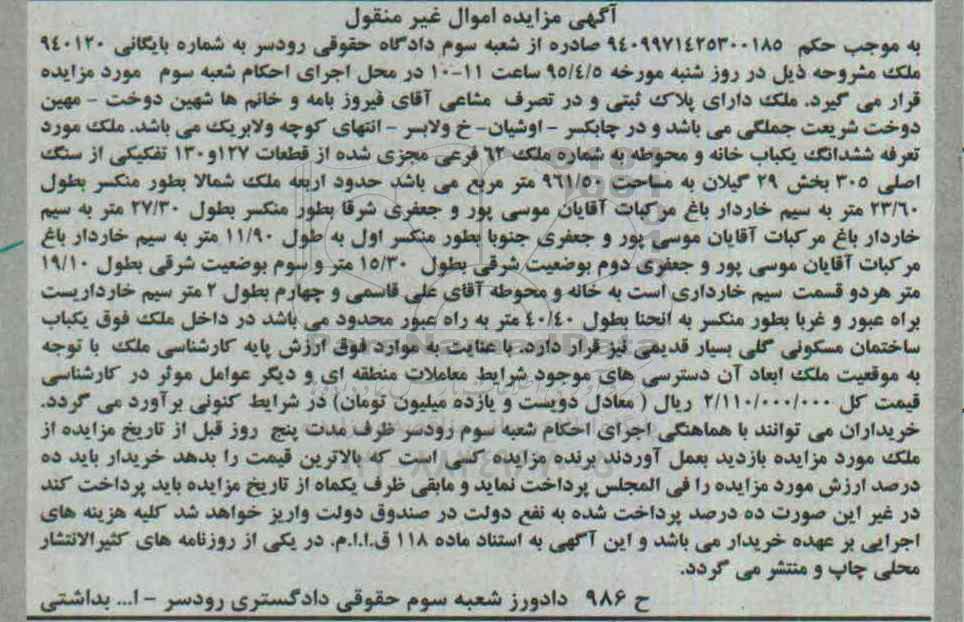 آگهی مزایده اموال غیر منقول
به موجب حکم ۹٤۰۹۹۷۱٤۲۵۳۰۰۱۸۵ صادره از شعبه سوم دادگاه حقوقی رودسر به شماره بایگانی ۹٤۰۱۲۰
ملک مشروحه ذیل در روز شنبه مورخه ۹۵/٤/۵ ساعت ۱۱-۱۰ در محل اجرای احکام شعبه سوم مورد مزایده
قرار می گیرد. ملک دارای پلاک ثبتی و در تصرف مشاعی آقای فیروز بامه و خانم ها شهین دوخت - مهین
دوخت شریعت جملگی می باشد و در چابکسر - اوشیان- خ ولابسر - انتهای کوچه ولابریک می باشد. ملک مورد
تعرفه ششدانگ یکباب خانه و محوطه به شماره ملک ٦۲ فرعی مجزی شده از قطعات ۱۲۷و۱۳۰ تفکیکی از سنگ
اصلی ۳۰۵ بخش ۲۹ گیلان به مساحت ۹٦۱/۵۰ متر مربع می باشد حدود اربعه ملک شمالا بطور منکسر بطول
۲۳/٦۰ متر به سیم خاردار باغ مرکبات آقایان موسی پور و جعفری شرقا بطور منکسر بطول ۲۷/۳۰ متر به سیم
خاردار باغ مرکبات آقایان موسی پور و جعفری جنوبا بطور منکسر اول به طول ۱۱/۹۰ متر به سیم خاردار باغ
مرکبات آقایان موسی پور و جعفری دوم بوضعیت شرقی بطول ۱۵/۳۰ متر و سوم بوضعیت شرقی بطول ۱۹/۱۰
متر هردو قسمت سیم خارداری است به خانه و محوطه آقای علی قاسمی و چهارم بطول ۲ متر سیم خارداریست
براه عبور و غربا بطور منکسر به انحنا بطول ٤۰/٤۰ متر به راه عبور محدود می باشد در داخل ملک فوق یکباب
ساختمان مسکونی گلی بسیار قدیمی نیز قرار دارد. با عنایت به موارد فوق ارزش پایه کارشناسی ملک با توجه
به موقعیت ملک ابعاد آن دسترسی های موجود شرایط معاملات منطقه ای و دیگر عوامل موثر در کارشناسی
قیمت کل ۲/۱۱۰/۰۰۰/۰۰۰ ریال ( معادل دویست و یازده میلیون تومان) در شرایط کنونی برآورد می گردد.
خریداران می توانند با هماهنگی اجرای احکام شعبه سوم رودسر ظرف مدت پنج روز قبل از تاریخ مزایده از
ملک مورد مزایده بازدید بعمل آوردند برنده مزایده کسی است که بالاترین قیمت را بدهد خریدار باید ده
درصد ارزش مورد مزایده را فی المجلس پرداخت نماید و مابقی ظرف یکماه از تاریخ مزایده باید پرداخت کند
در غیر این صورت ده درصد پرداخت شده به نفع دولت در صندوق دولت واریز خواهد شد کلیه هزینه های
اجرایی بر عهده خریدار می باشد و این آگهی به استناد ماده ۱۱۸ ق.ا.ا.م. در یکی از روزنامه های کثیرالانتشار
محلی چاپ و منتشر می گردد.
ح ۹۸٦ دادورز شعبه سوم حقوقی دادگستری رودسر - ا... بداشتی